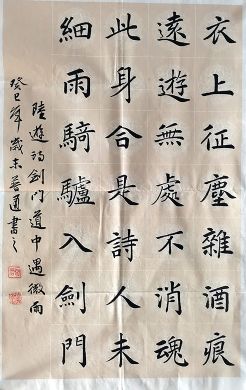 衣上征塵雜酒痕
遠遊無處不消魂
此身合是詩人未
細雨騎驢入劍門
陸遊詩劍門道中遇微雨
癸巳年歲末善通書之